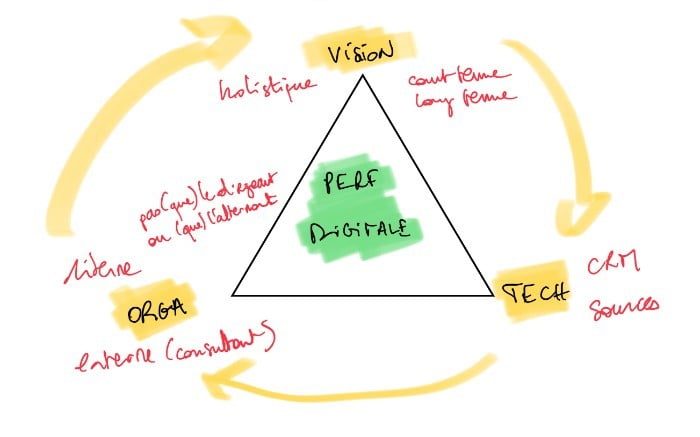 Vision
holistique
court terme
long terme
PERF
DIGITALE
pas (que) le dirigeant
ou (que) l'alternant
interne
ORGA
externe (consultant)
TECH
CRM
Sources